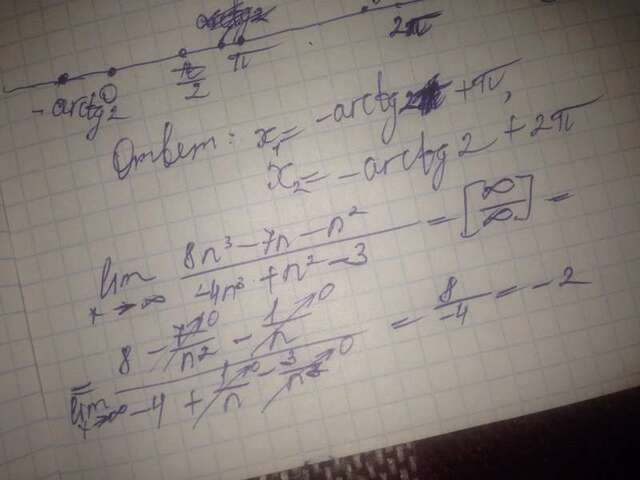 -arctg 2 0 π/2 π 2π
Ответ: x₁ = -arctg 2 + π,
x₂ = -arctg 2 + 2π
lim x→∞ (8n³ - 7n - n²)/(-4n³ + n² - 3) = [∞/∞] =
= lim (8 - 7/n² →0 - 1/n →0)/(-4 + 1/n - 3/n³ →0) = 8/-4 = -2